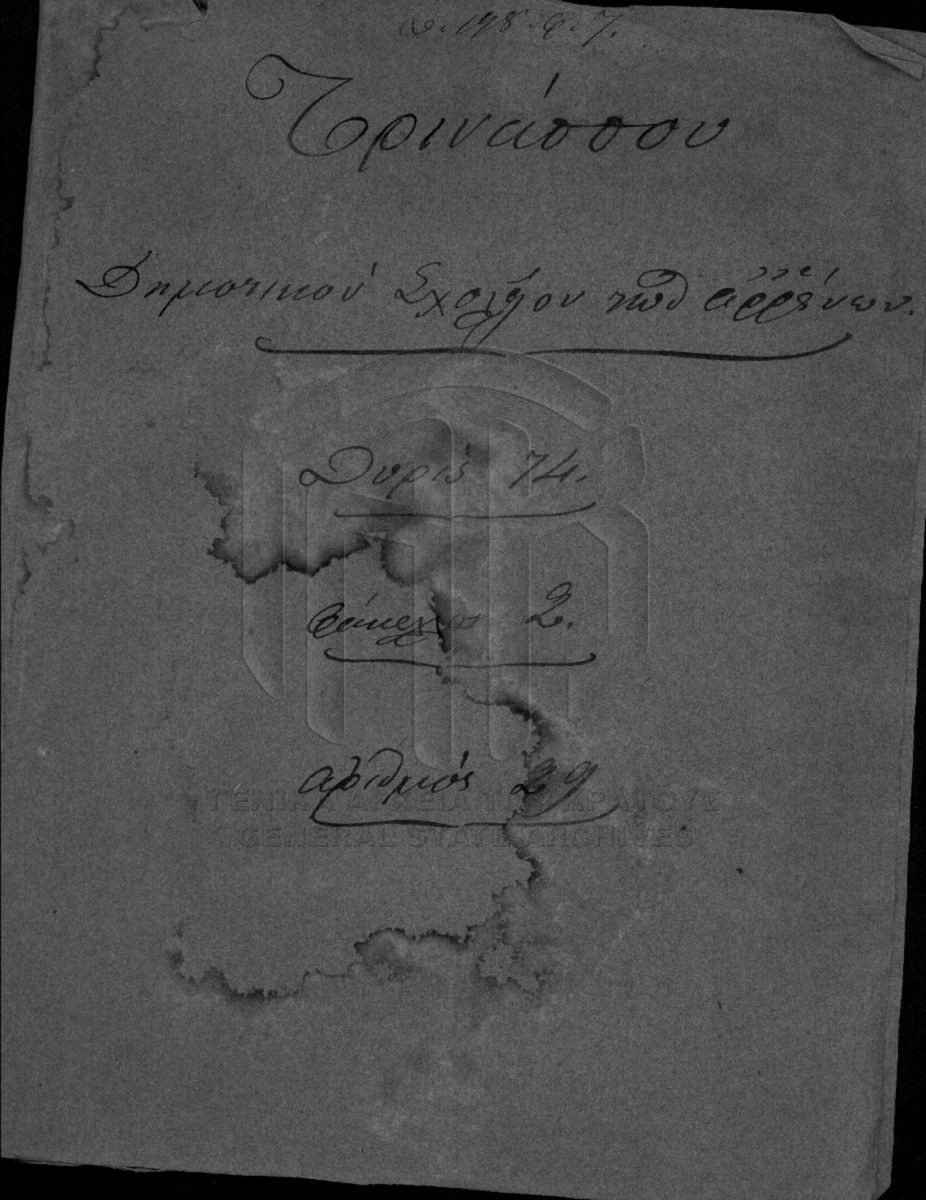 Θ. 198. φ. 7.
Τρινάσσου
Δημοτικού Σχολείου των αρρένων.
Θυρίς 74.
Φάκελλος 2.
αριθμός 29
ΓΕΝΙΚΑ ΑΡΧΕΙΑ ΤΟΥ ΚΡΑΤΟΥΣ
GENERAL STATE ARCHIVES